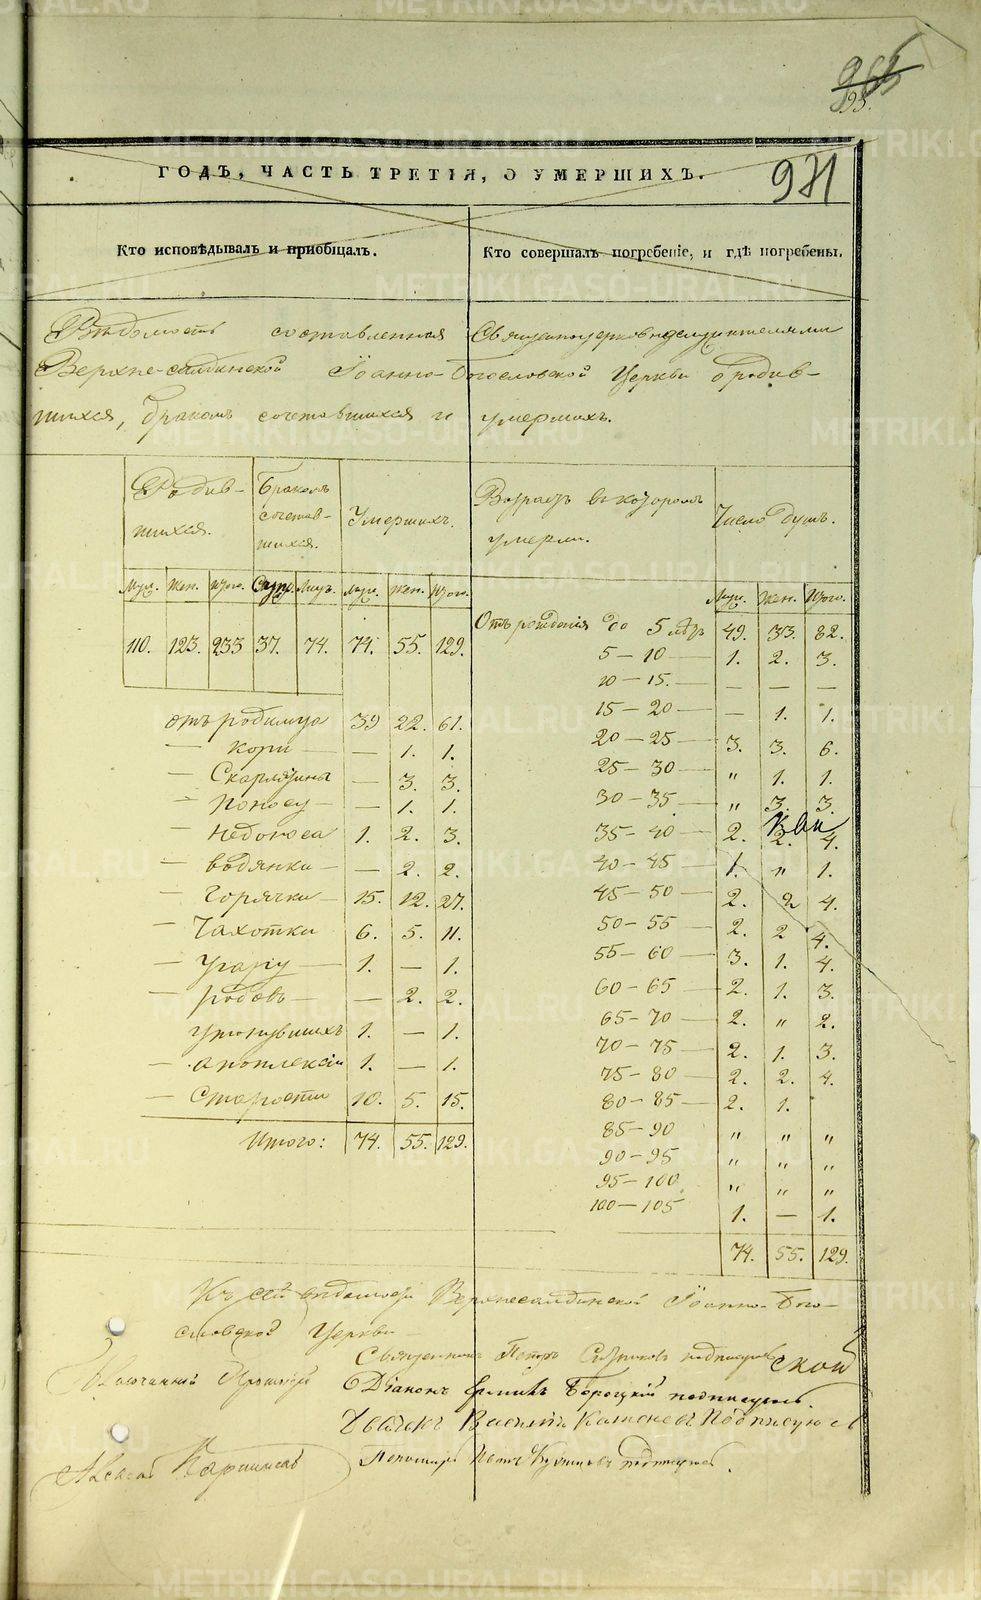 965
93.
ГОДЪ, ЧАСТЬ ТРЕТІЯ, О УМЕРШИХЪ.
971
Кто исповѣдывалъ и пріобщалъ.
Кто совершалъ погребеніе, и гдѣ погребены.
Вѣдомость составленная Священноцерковнослужителями
Верхне-салдинской Іоанно-Богословской Церкви о родив-
шихся, бракомъ сочетавшихся и умершихъ.
Родив-
шихся.
Бракомъ
сочетав-
шихся.
Умершихъ.
Муж. Жен. Итого. Супр. Лицъ. Муж. Жен. Итого.
110. 123. 233 37. 74. 74. 55. 129.
отъ родимца 39 22. 61.
— кори — — 1. 1.
— Скарлатины — 3. 3.
— Поносу — — 1. 1.
— недоноса 1. 2. 3.
— водянки — — 2. 2.
— Горячки — 15. 12. 27.
— Чахотки 6. 5. 11.
— Угару — 1. — 1.
— родовъ — — 2. 2.
утонувшихъ 1. — 1.
— апоплексіи 1. — 1.
— Старости 10. 5. 15.
Итого: 74. 55. 129.
Возрастъ въ которомъ
умерли.
Число душъ.
Муж. Жен. Итого.
Отъ рожденія до 5 лѣтъ 49. 33. 82.
5 — 10 — 1. 2. 3.
10 — 15. — — — —
15 — 20 — — 1. 1.
20 — 25 — 3. 3. 6.
25 — 30 — " 1. 1.
30 — 35 — " 3. 3.
35 — 40 — 2. 2. 4.
40 — 45 — 1. " 1.
45 — 50 2. 2 4.
50 — 55 — 2. 2 4.
55 — 60 — 3. 1. 4.
60 — 65 — 2. 1. 3.
65 — 70 — 2. " 2.
70 — 75 — 2. 1. 3.
75 — 80 — 2. 2. 4.
80 — 85 — 2. 1.
85 — 90 " " "
90 — 95 " " "
95 — 100 " " "
100 — 105 1. — 1.
74. 55. 129.
Къ сей вѣдомости Верхнесалдинской Іоанно-Бого-
словской Церкви
Священникъ Петръ
Діаконъ подписуюсь.
Дьячекъ Василій Каменевъ Подписуюсь
Пономарь подписуюсь.
METRIKI.GASO-URAL.RU